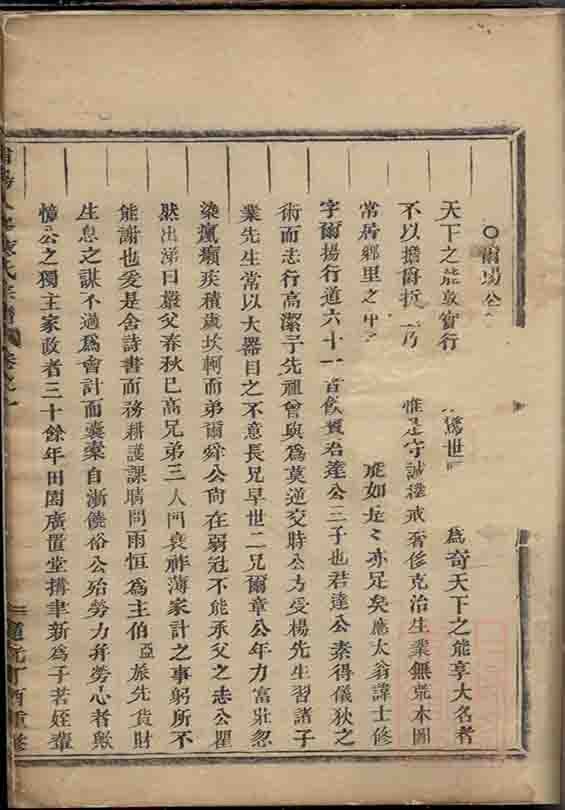 ○爾揚公
天下之能敦實行 為世 為奇天下之能享大名者
不以擔爵 乃 惟是守誠 戒奢侈克治生業無荒本圖
常居鄉里之中 能如是亦足矣應大翁諱士修
字爾揚行道六十一 飲賓君達公三子也君達公素得儀狄之
術而志行高潔予先祖曾與為莫逆交時公方受楊先生習諸子
業先生常以大器目之不意長兄早世二兄爾章公年力富壯忽
染瘋癲疾積歲坎軻而弟爾舜公尚在弱冠不能承父之志公瞿
然出涕曰嚴父春秋已高兄弟三人門衰祚薄家計之事躬所不
能謝也爰是舍詩書而務耕讀課晴問雨恒為主伯亞旅先貨財
生息之謀不過為會計而囊橐自漸饒裕公殆勞力并勞心者歟
憶公之獨主家政者三十餘年田園廣置堂搆聿新為子若姪輩
氏宗譜 卷之一
丁酉重修